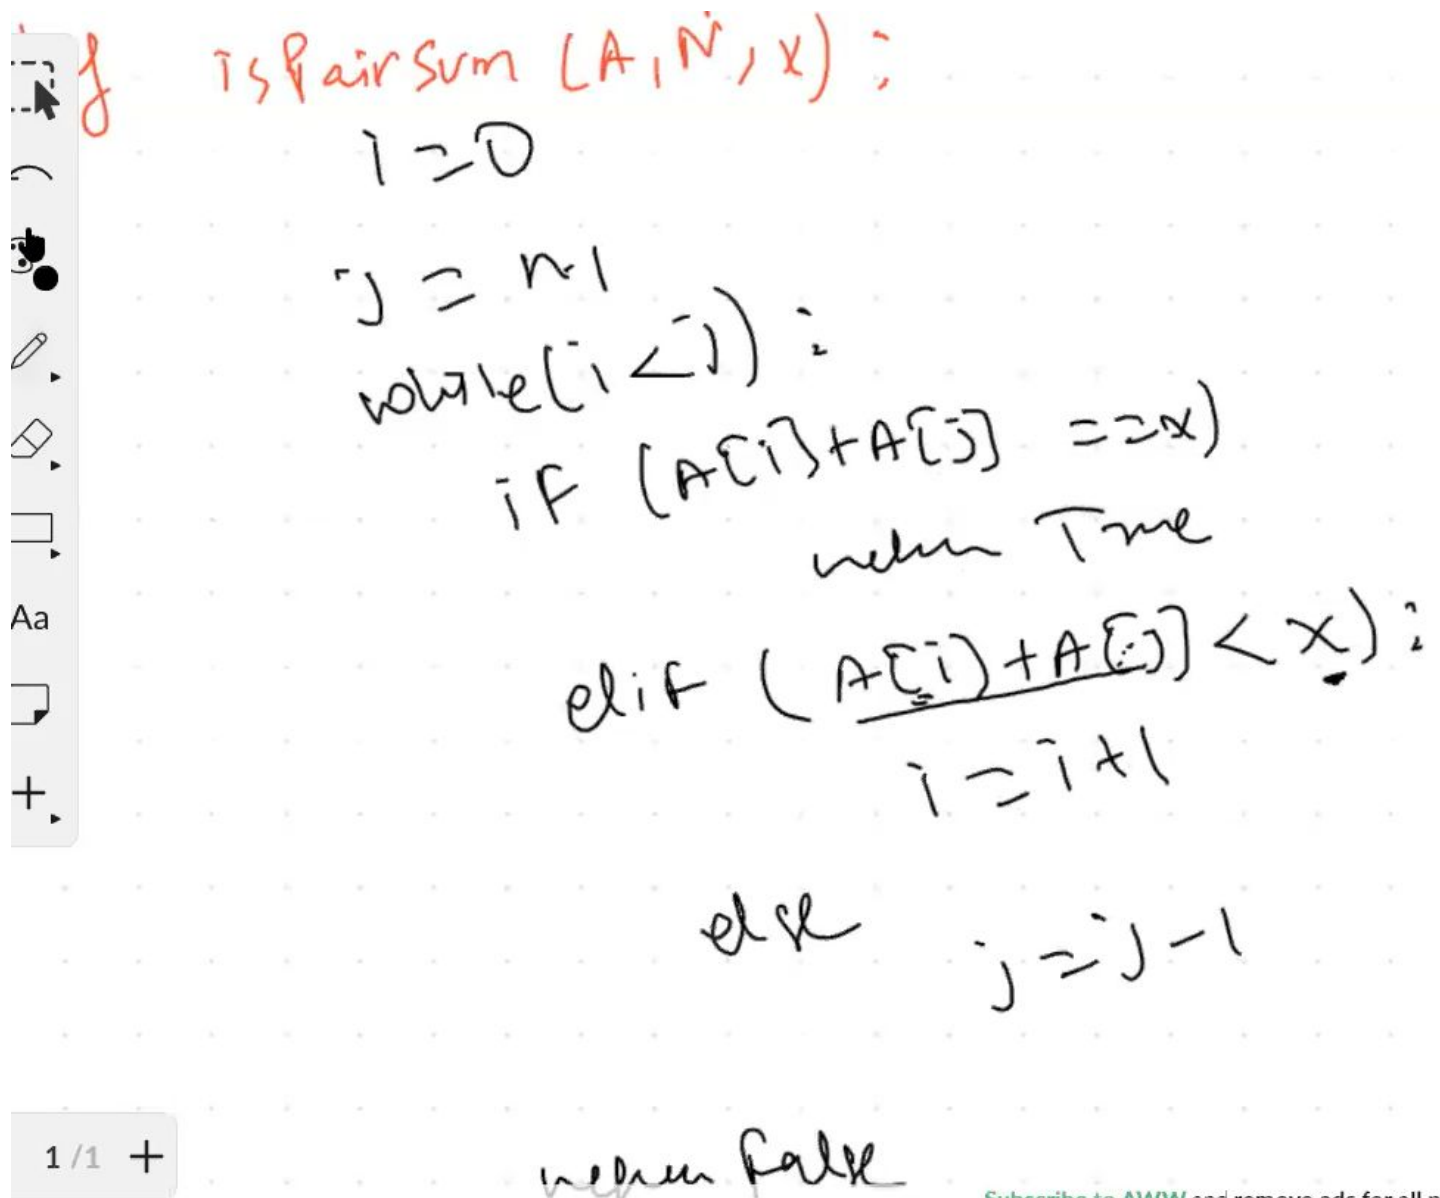 f isPairSum (A, N, X) :
i = 0
j = n-1
while(i < j) :
if (A[i]+A[j] ==x)
return True
elif ( A[i)+A[j] < x) :
i = i+1
else j = j-1
Aa
1 /1 +
return False
Subscribe to AWW and remove ads for all